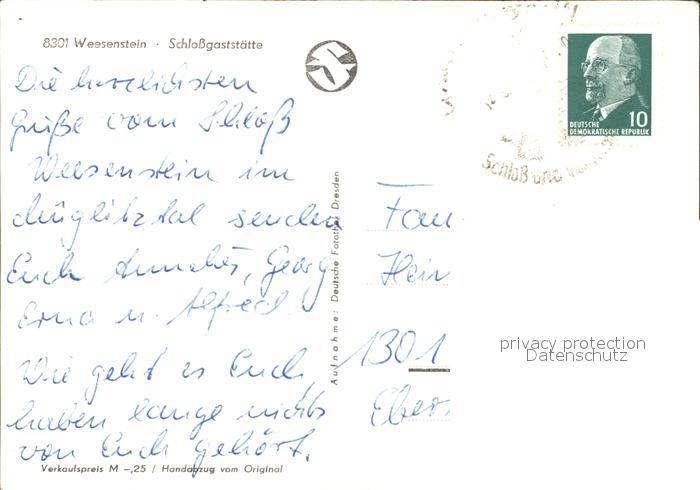 8301 Weesenstein · Schloßgaststätte
Die herzlichsten
Grüße vom Schloß
Weesenstein im
Müglitztal senden
Euch Annelies, Georg
Erna u. Alfred.
Wie geht es Euch,
haben lange nichts
von Euch gehört.
Verkaufspreis M –,25 / Handabzug vom Original
Aufnahme: Deutsche Fotothek Dresden
DEUTSCHE
DEMOKRATISCHE REPUBLIK
10
Schloß und
Fam
Hein
1301
Ebers
privacy protection
Datenschutz